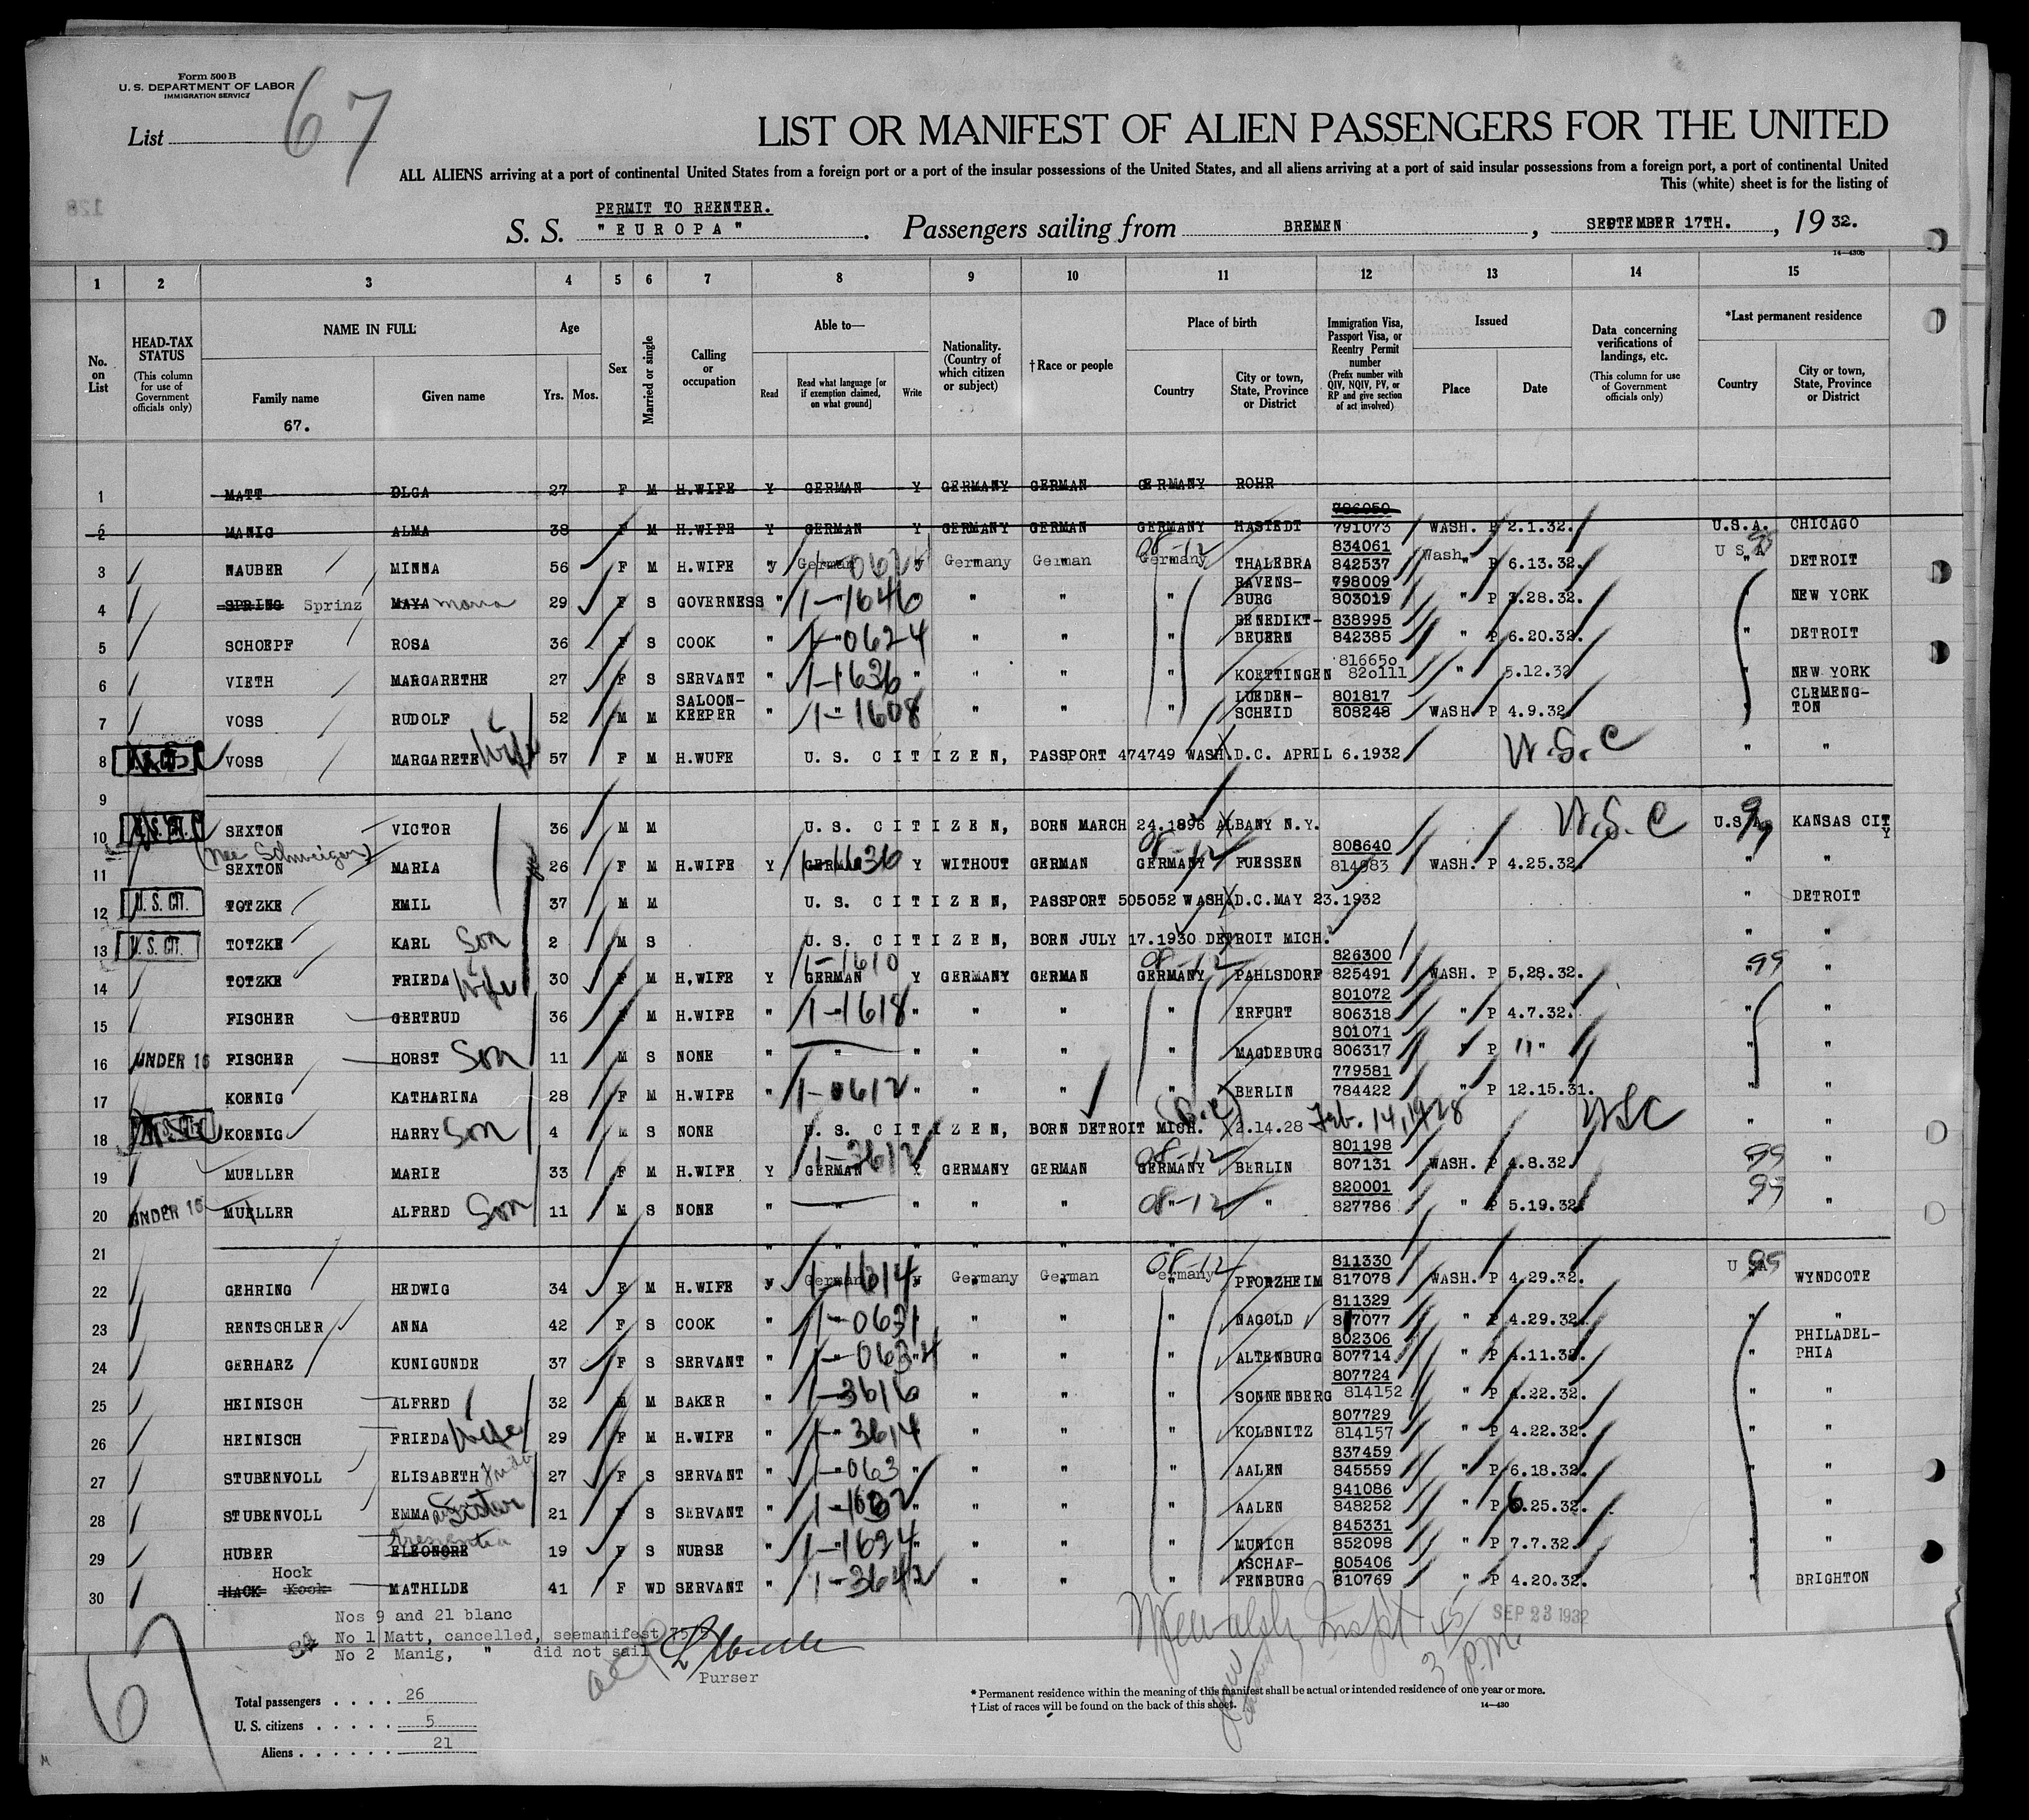 Form 500 B
U. S. DEPARTMENT OF LABOR
IMMIGRATION SERVICE
List 67
LIST OR MANIFEST OF ALIEN PASSENGERS FOR THE UNITED
ALL ALIENS arriving at a port of continental United States from a foreign port or a port of the insular possessions of the United States, and all aliens arriving at a port of said insular possessions from a foreign port, a port of continental United
This (white) sheet is for the listing of
128
PERMIT TO REENTER.
S. S. "EUROPA". Passengers sailing from BREMEN, SEPTEMBER 17TH., 19 32.
14-430b
1 2 3 4 5 6 7 8 9 10 11 12 13 14 15
No. on List
HEAD-TAX STATUS (This column for use of Government officials only)
NAME IN FULL
Family name
67.
Given name
Age
Yrs. Mos.
Sex
Married or single
Calling or occupation
Able to—
Read
Read what language [or if exemption claimed, on what ground]
Write
Nationality. (Country of which citizen or subject)
†Race or people
Place of birth
Country
City or town, State, Province or District
Immigration Visa, Passport Visa, or Reentry Permit number (Prefix number with QIV, NQIV, PV, or RP and give section of act involved)
Issued
Place
Date
Data concerning verifications of landings, etc. (This column for use of Government officials only)
*Last permanent residence
Country
City or town, State, Province or District
1 MATT OLGA 27 F M H.WIFE Y GERMAN Y GERMANY GERMAN GERMANY ROHR
2 MANIG ALMA 38 F M H.WIFE Y GERMAN Y GERMANY GERMAN GERMANY HASTEDT 786050 791073 WASH. P 2.1.32. U.S.A. CHICAGO
3 NAUBER MINNA 56 F M H.WIFE Y German Y Germany German Germany 08-12 THALEBRA 834061 842537 Wash. P 6.13.32. U S A 99 " DETROIT
4 SPRING Sprinz MAYA Maria 29 F S GOVERNESS " 1-1646 " " " " RAVENS-BURG 798009 803019 " P 3.28.32. " NEW YORK
5 SCHOEPF ROSA 36 F S COOK " 1-0624 " " " BENEDIKT-BEUERN 838995 842385 " P 6.20.32. " DETROIT
6 VIETH MARGARETHE 27 F S SERVANT " 1-1636 " " " " KOETTINGEN 816650 820111 " 5.12.32 " NEW YORK
7 VOSS RUDOLF 52 M M SALOON-KEEPER " 1-1608 " " " LUEDEN-SCHEID 801817 808248 WASH. P 4.9.32. " CLEMENG-TON
8 VOSS MARGARETE Wife 57 F M H.WUFE U. S. CITIZEN, PASSPORT 474749 WASH.D.C. APRIL 6.1932 U.S.C " "
9
10 U.S. CIT. SEXTON VICTOR 36 M M U. S. CITIZEN, BORN MARCH 24.1896 ALBANY N.Y. U.S.C U.S.A. 99 KANSAS CITY
(nee Schweiger)
11 SEXTON MARIA 26 F M H.WIFE Y GERMAN 1-1636 Y WITHOUT GERMAN GERMANY 08-12 FUESSEN 808640 814983 WASH. P 4.25.32. " "
12 U. S. CIT. TOTZKE EMIL 37 M M U. S. CITIZEN, PASSPORT 505052 WASH.D.C.MAY 23.1932 " DETROIT
13 U. S. CIT. TOTZKE KARL Son 2 M S U. S. CITIZEN, BORN JULY 17.1930 DETROIT MICH. " "
14 TOTZKE FRIEDA Wife 30 F M H,WIFE Y GERMAN 1-1610 Y GERMANY GERMAN GERMANY 08-12 PAHLSDORF 826300 825491 WASH. P 5,28.32. " 99 "
15 FISCHER GERTRUD 36 F M H.WIFE " 1-1618 " " " " ERFURT 801072 806318 " P 4.7.32. " "
16 UNDER 16 FISCHER HORST Son 11 M S NONE " " " " " " MAGDEBURG 801071 806317 " P 11 " " "
17 KOENIG KATHARINA 28 F M H.WIFE " 1-0612 " " " " BERLIN 779581 784422 " P 12.15.31. " "
18 KOENIG HARRY Son 4 M S NONE U. S. CITIZEN, BORN DETROIT MICH. (B.C) 2.14.28 Feb. 14, 1928 USC " "
19 MUELLER MARIE 33 F M H.WIFE Y GERMAN 1-3612 Y GERMANY GERMAN GERMANY 08-12 BERLIN 801198 807131 WASH. P 4.8.32. " 99 "
20 UNDER 16 MUELLER ALFRED Son 11 M S NONE " " " " " 08-12 " 820001 827786 " P 5.19.32. " 99 "
21 " " " " "
22 GEHRING HEDWIG 34 F M H.WIFE Y German 1-1614 Y Germany German Germany 08-12 PFORZHEIM 811330 817078 WASH. P 4.29.32. U SA 99 WYNDCOTE
23 RENTSCHLER ANNA 42 F S COOK " 1-0631 " " " NAGOLD 811329 817077 " P 4.29.32. " "
24 GERHARZ KUNIGUNDE 37 F S SERVANT " 1-0634 " " " ALTENBURG 802306 807714 " P 4.11.32. " PHILADEL-PHIA
25 HEINISCH ALFRED 32 M M BAKER " 1-3616 " " " SONNENBERG 807724 814152 " P 4.22.32. " "
26 HEINISCH FRIEDA Wife 29 F M H.WIFE " 1-3614 " " " KOLBNITZ 807729 814157 " P 4.22.32. " "
27 STUBENVOLL ELISABETH 27 F S SERVANT " 1-063 " " " " AALEN 837459 845559 " P 6.18.32. " "
28 STUBENVOLL EMMA Sister 21 F S SERVANT " 1-1632 " " " AALEN 841086 848252 " P 6.25.32. " "
29 HUBER ELEONORE Kresentia 19 F S NURSE " 1-1624 " " " " MUNICH 845331 852098 " P 7.7.32. " "
30 HACK Kock Hock MATHILDE 41 F WD SERVANT " 1-3642 " " " ASCHAF-FENBURG 805406 810769 " P 4.20.32. " BRIGHTON
Nos 9 and 21 blanc
No 1 Matt, cancelled, seemanifest 75/
No 2 Manig, " did not sail
Purser
Inspt
SEP 23 1932
3 45 P.M.
67
Total passengers . . . . 26
U. S. citizens . . . . . 5
Aliens . . . . . . 21
* Permanent residence within the meaning of this manifest shall be actual or intended residence of one year or more.
† List of races will be found on the back of this sheet.
14—430